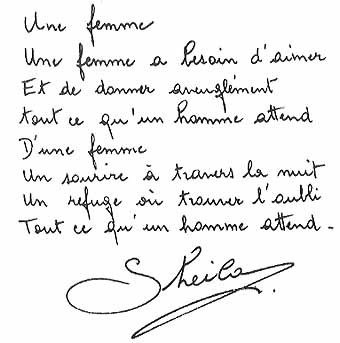 Une femme
Une femme a besoin d'aimer
Et de donner aveuglément
tout ce qu'un homme attend
D'une femme
Un sourire à travers la nuit
Un refuge où trouver l'oubli
Tout ce qu'un homme attend.
Sheila